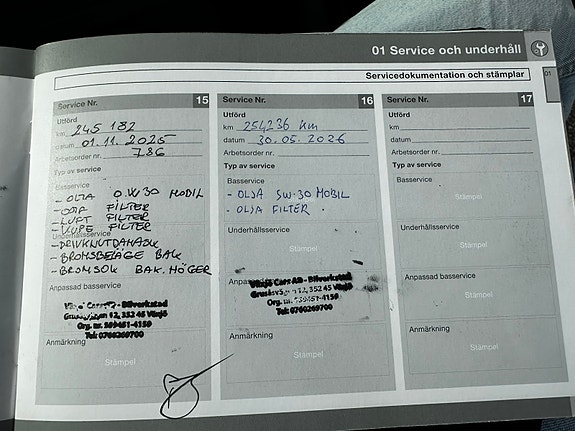 01 Service och underhåll
01
Servicedokumentation och stämplar
Service Nr. 15
Utförd
km 245 182
datum 01.11.2025
Arbetsorder nr. 786
Typ av service
Basservice
- OLJA 0.W30 MOBIL
- OLJA FILTER
- LUFT FILTER
- KUPE FILTER
Underhållsservice
- DRIVKNUTDAMASK
- BROMSBELÄGG BAK
- BROMSOK BAK. HÖGER
Anpassad basservice
Växjö Cars AB - Bilverkstad
12, 352 45 Växjö
Org. nr. 559451-4159
Tel: 0760269700
Anmärkning
Stämpel
Service Nr. 16
Utförd
km 254236 km
datum 30.05.2026
Arbetsorder nr.
Typ av service
Basservice
- OLJA 5W-30 MOBIL
- OLJA FILTER .
Underhållsservice
Stämpel
Växjö Cars AB - Bilverkstad
12, 352 45 Växjö
Org. nr. 559451-4159
Tel: 0760269700
Anmärkning
Stämpel
Service Nr. 17
Utförd
km
datum
Arbetsorder nr.
Typ av service
Basservice
Stämpel
Underhållsservice
Stämpel
Anpassad basservice
Stämpel
Anmärkning
Stämpel